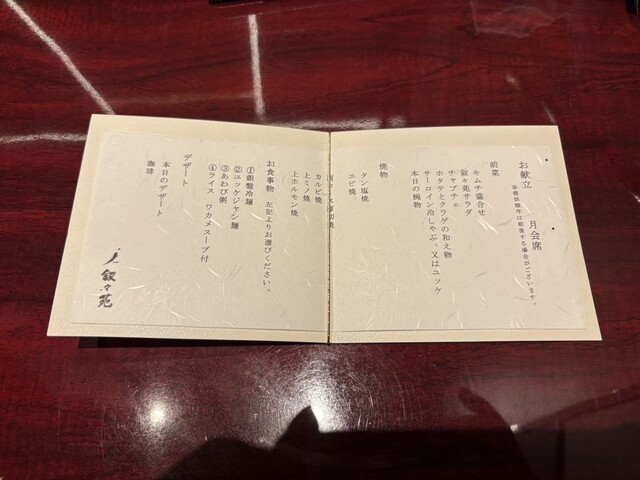 お献立
月会席
※提供順序は前後する場合がございます。
前菜
キムチ盛合せ
叙々苑サラダ
チャプチェ
ホタテとクラゲの和え物
サーロイン冷しゃぶ。又はユッケ
本日の椀物
焼物
タン塩焼
エビ焼
カルビ焼
上ミノ焼
上ホルモン焼
お食事物 左記よりお選びください。
①銀盤冷麺
②ユッケジャン麺
③あわび粥
④ライス ワカメスープ付
デザート
本日のデザート
珈琲
叙々苑